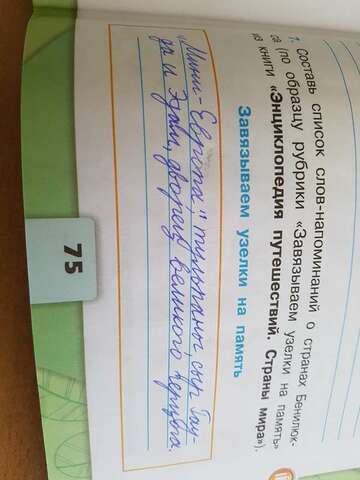 1. Составь список слов-напоминаний о странах Бенилюк-
са (по образцу рубрики «Завязываем узелки на память»
из книги «Энциклопедия путешествий. Страны мира»).
Завязываем узелки на память
„Мини-Европа", тюльпаны, сыр Гау-
да и Эдам, дворец великого герцога.
75